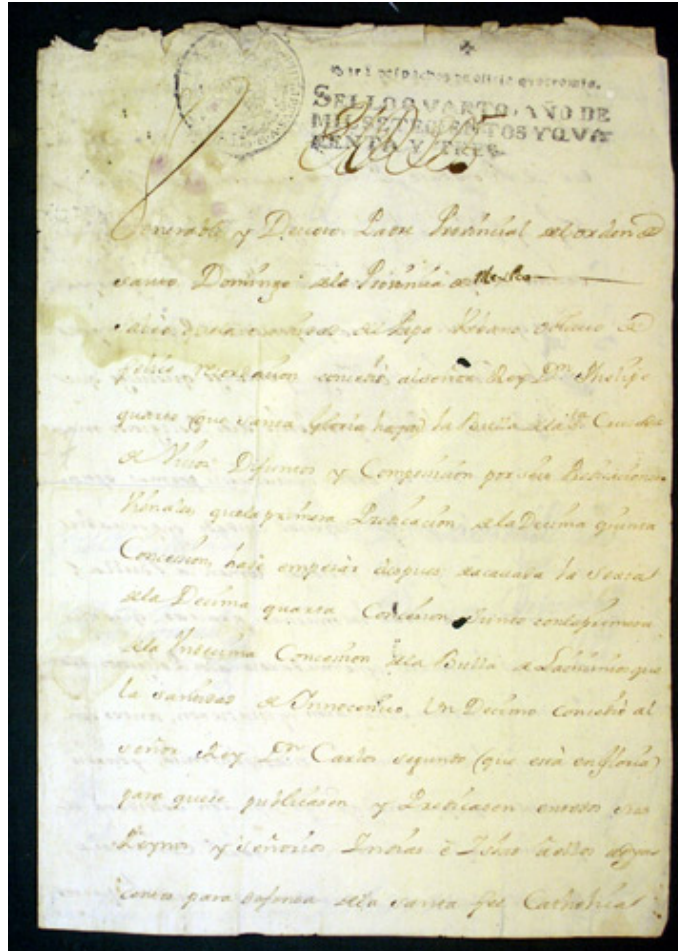 Para despachos de oficio quatro mrs.
SELLO QVARTO, AÑO DE
MIL SETECIENTOS Y QVA
RENTA Y TRES.
Venerable y Devoto Padre Provincial del orden de
santo Domingo de la Provincia de Mexico
de la Santidad del Papa Urbano octavo de
feliz recordacion concedió al señor Rey Dn Phelipe
quarto (que santa gloria haya) la Bulla de la Sta Cruzada
de Vivos Difuntos y Composicion por seis Predicaciones
Vienales, que la primera Predicacion de la Decima quinta
Concesion, ha de empezar despues de acavada la Sexta
de la Decima quarta Concesion Junto con la primera
de la Concesion de la Bulla de Lacticinios que
la santidad de Innocencio Un Decimo concedió al
señor Rey Dn Carlos segundo (que está en gloria)
para que se publicasen y Predicasen en todos sus
Reynos y señorios Indias é Islas á ellos adya
centes para defensa de la santa fee Catholica